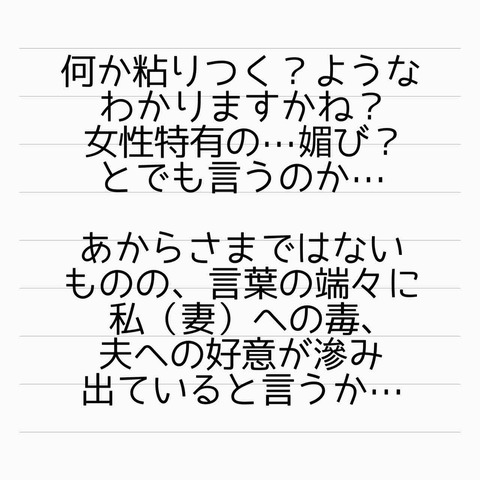 何か粘りつく？ような
わかりますかね？
女性特有の…媚び？
とでも言うのか…
あからさまではない
ものの、言葉の端々に
私（妻）への毒、
夫への好意が滲み
出ていると言うか…